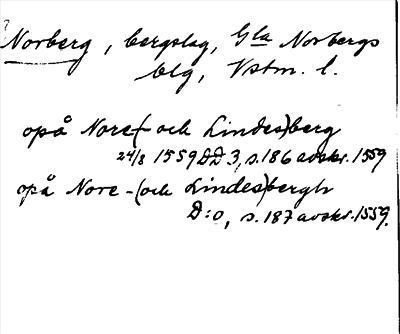 Norberg, bergslag, Gla Norbergs
blg, Vstm. l.
opå Nore(- och Lindes)berg
24/8 1559 DD 3, s. 186 avskr. 1559
opå Nore-(och Lindes)bergh
D:o, s. 187 avskr. 1559.